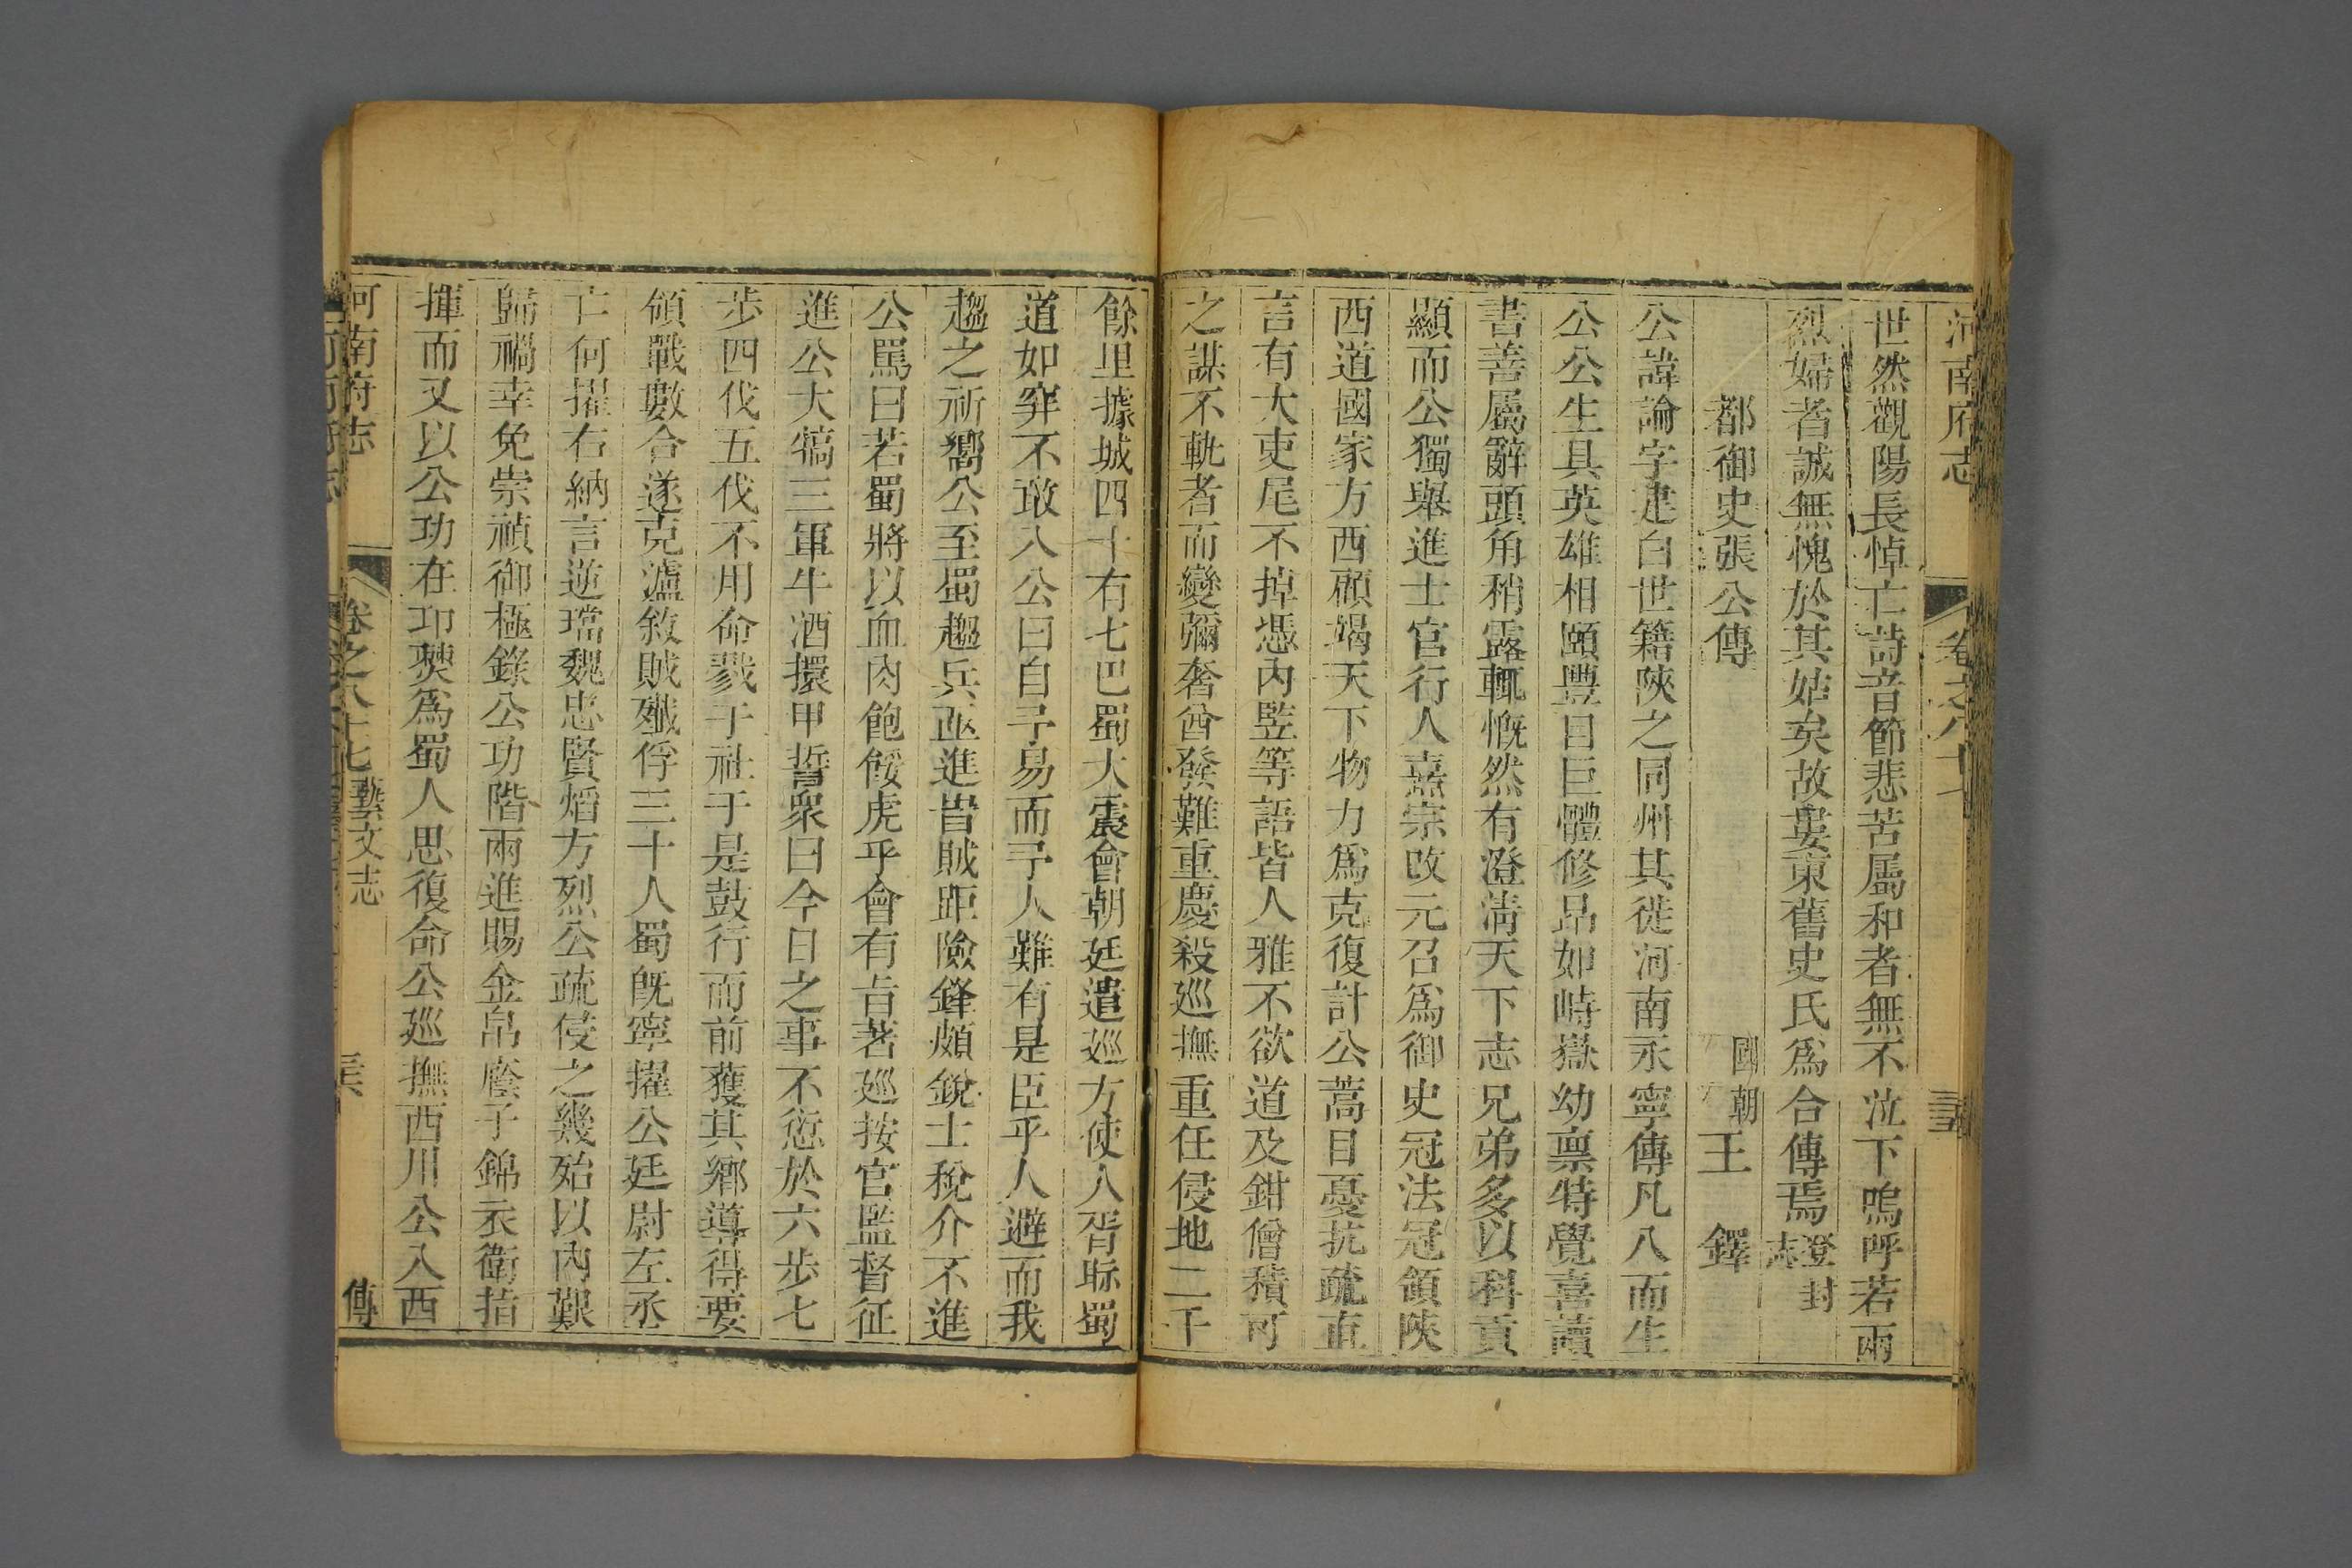 河南府志
卷之八十七
世然觀陽長悼亡詩音節悲苦屬和者無不泣下嗚呼若兩
烈婦者誠無愧於其姑矣故婁東舊史氏為合傳焉登封志
都御史張公傳
國朝王鐸
公諱論字建白世籍陝之同州其徙河南永寧傳凡八而生
公公生具英雄相頤豐目巨體修昂如峙嶽幼禀特覺喜讀
書善屬辭頭角稍露輒慨然有澄淸天下志兄弟多以科貢
顯而公獨舉進士官行人熹宗改元召爲御史冠法冠領陝
西道國家方西顧竭天下物力爲克復計公蒿目憂抗疏直
言有大吏尾不掉憑內監等語皆人雅不欲道及鉗僧積可
之謀不軌者而變彌奢酋發難重慶殺巡撫重任侵地二千
餘里據城四十有七巴蜀大震會朝廷遣巡方使入胥眎蜀
道如穽不敢入公曰自予易而予人難有是臣乎人避而我
趨之祈嚮公至蜀趨兵亟進旹賊距險鋒頗銳士稅介不進
公罵曰若蜀將以血肉飽餒虎乎會有旨著巡按官監督征
進公大犒三軍牛酒擐甲誓衆曰今日之事不愆於六步七
步四伐五伐不用命戮于社于是鼓行而前獲其鄉導得要
領戰數合遂克瀘敘賊殲俘三十人蜀旣寧擢公廷尉左丞
亡何擢右納言逆璫魏忠賢熖方烈公疏侵之幾殆以內艱
歸禍幸免崇禎御極錄公功階兩進賜金帛廕子錦衣衛指
揮而又以公功在卭僰爲蜀人思復命公巡撫西川公入西
河南府志
卷之八十七
藝文志
傳